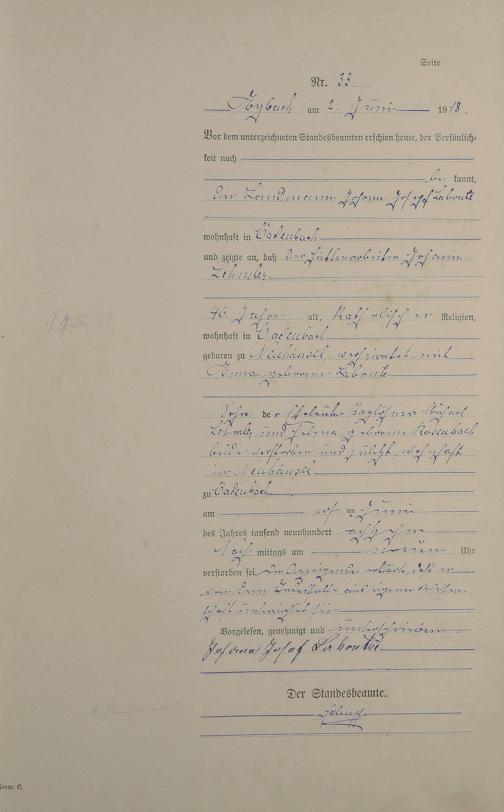 Seite
Nr. 33
am 2. Juni 1918.
Vor dem unterzeichneten Standesbeamten erschien heute, der Persönlich-
keit nach
be kannt,
der Landmann Johann Josef Labonte
wohnhaft in Oadenbach
und zeigte an, daß der Hüttenarbeiter Johann
46 Jahre alt, katholischer Religion,
wohnhaft in Oadenbach
geboren zu Neuhäusel, verheiratet mit
Anna geborene Labonte
Sohn der Eheleute Taglöhner Michael
und Helena geborene Rosenbach
beide verstorben und zuletzt wohnhaft
in Neuhäusel
zu Oadenbach
am ten Juni
des Jahres tausend neunhundert achtzehn
Nach mittags um neun Uhr
verstorben sei. Der Anzeigende erklärte, daß er
von dem Sterbefalle aus eigener Wissen-
schaft unterrichtet sei
Vorgelesen, genehmigt und unterschrieben
Johann Josef Labonte
Der Standesbeamte.
Form. C.